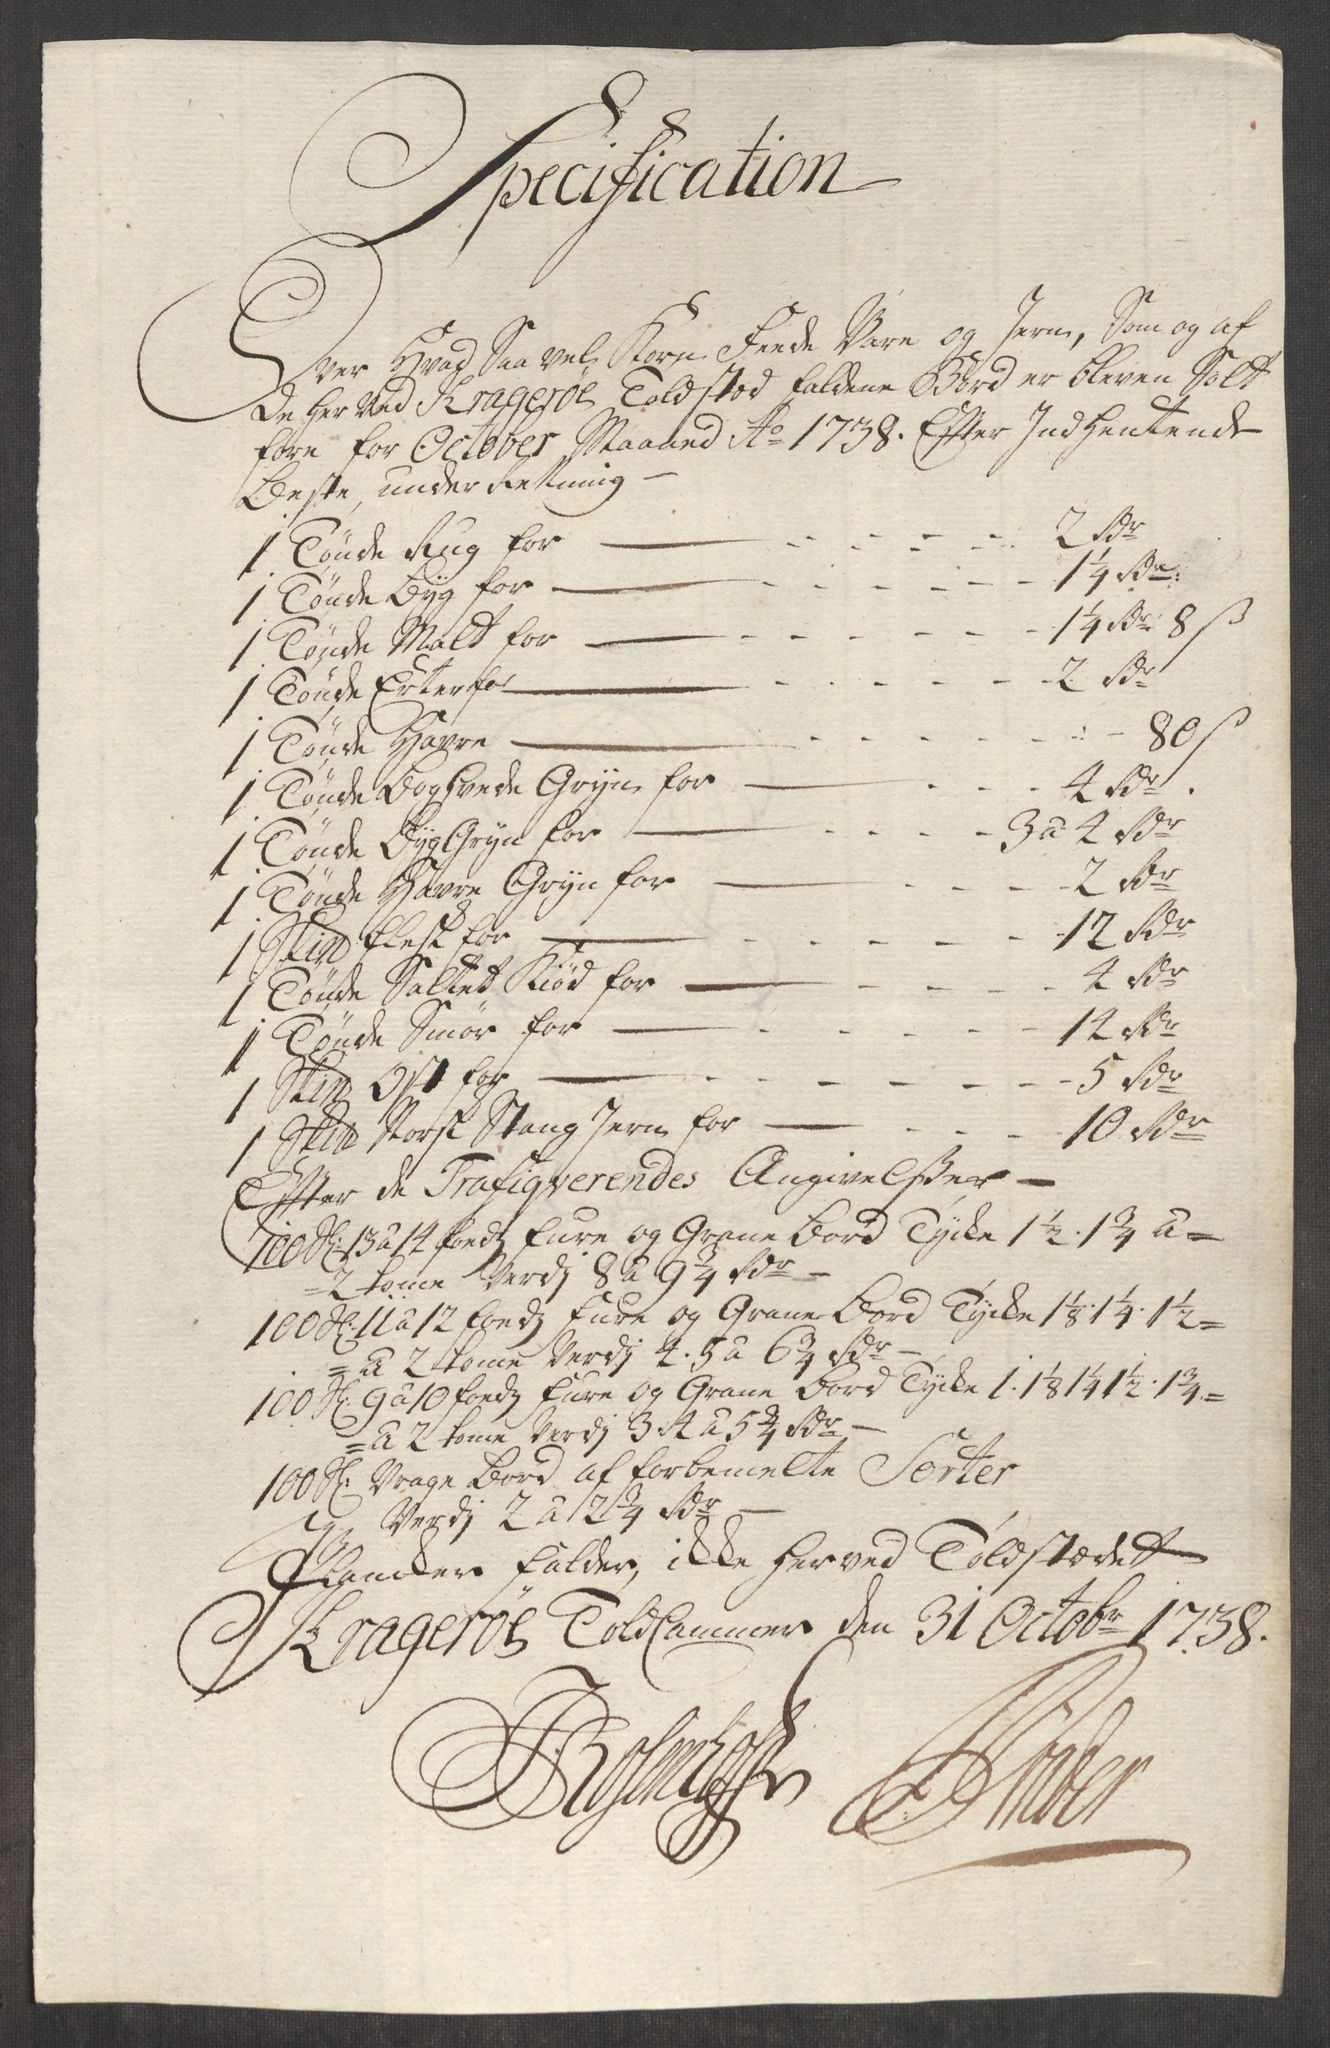 Specification
Over Hvad Saa vel Korn Feede Vare og Jern, Som og af
De her Ved Kragerøe Toldstæd faldene Bord er bleven Solt
fore for October Maaned Ao 1738. Efter Indhentende
beste underRetning —
1 Tønde Rug for — 2 Rdr
1 Tønde Byg for — 1 1/4 Rdr:
1 Tønde Malt for — 1 1/4 Rdr 8 ß
1 Tønde Erter for — 2 Rdr
1 Tønde Havre — 80 ß
1 Tønde Boghvede Gryn for — 4 Rdr.
1 Tønde Byg Gryn for — 3 a 4 Rdr
1 Tønde Havre Gryn for — 2 Rdr
1 Sk℔ flesk for — 12 Rdr
1 Tønde Saltet Kiød for — 4 Rdr
1 Tønde Smør for — 14 Rdr
1 Sk℔ Ost for — 5 Rdr
1 Sk℔ Norsk Stang Jern for — 10 Rdr
Efter de Trafiqverendes Angivelsser —
100 St: 13 a 14 foeds fure og Grane Bord Tycke 1 1/2. 1 3/4 a =
= 2 tome Verdj 8 a 9 3/4 Rdr —
100 St: 11 a 12 foeds fure og Grane Bord Tycke 1 1/8. 1 1/4. 1 1/2 =
= a 2 tome Verdj 4. 5 a 6 3/4 Rdr —
100 St: 9 a 10 foeds fure og Grane Bord Tycke 1. 1 1/8 1 1/4 1 1/2. 1 3/4. =
= a 2 tome Verdj 3. 4 a 5 3/4 Rdr —
100 St: Vrage Bord af forbemelte Sorter
Verdj 2 a 2 3/4 Rdr —
Plancker falder, ikke herved Toldstædet
Kragerøe ToldCammer den 31 Octobr 1738.